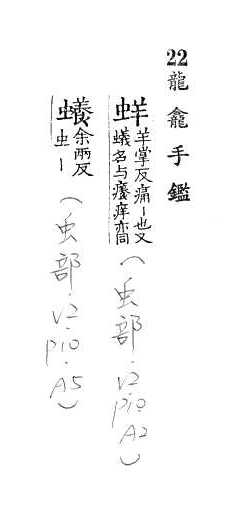 22龍龕手鑑
蛘羊掌反痛〡也又
蟻名与癢痒亦同
(虫部.V2.P10.A2)
蠬余兩反
虫〡
(虫部.V2.P10.A5)